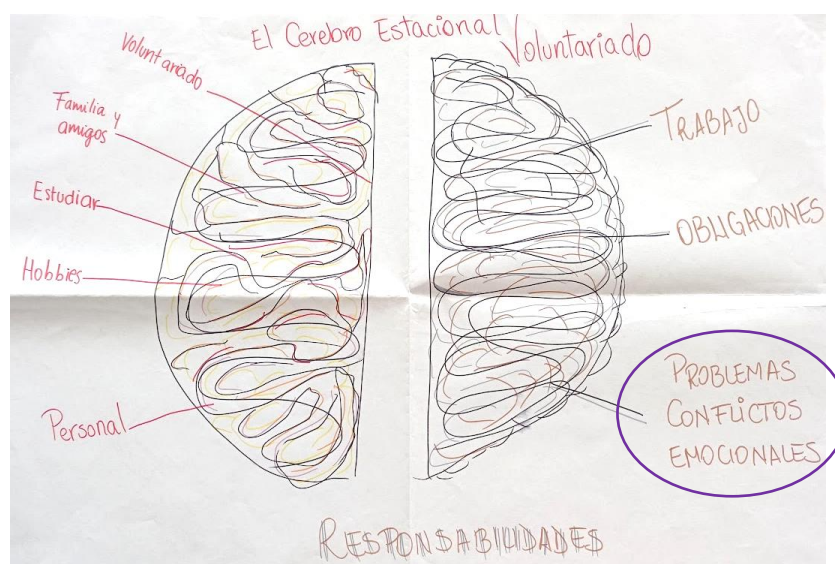 El Cerebro Estacional
Voluntariado
Voluntariado
Familia y
amigos
Estudiar
Hobbies
Personal
TRABAJO
OBLIGACIONES
PROBLEMAS
CONFLICTOS
EMOCIONALES
RESPONSABILIDADES